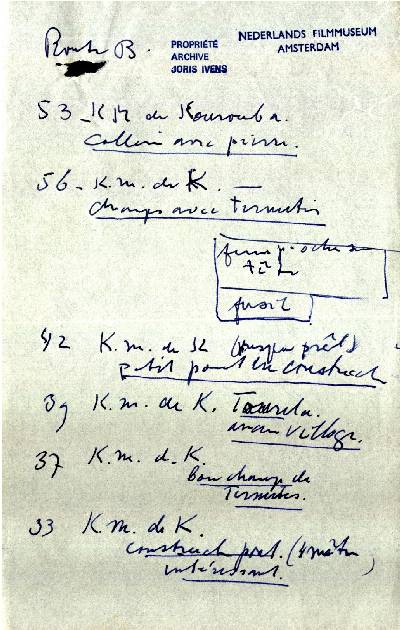 Route B.
PROPRIÉTÉ
ARCHIVE
JORIS IVENS
NEDERLANDS FILMMUSEUM
AMSTERDAM
53 - KM de Kourouba.
Colline avec pierre.
56 - K.m. de K. —
champs avec termitin
fusil
42 K.m. de K (presque prêt)
petit pont en construct
39 K.m. de K.
avant village.
37 K.m. d. K.
bon champ de
termites.
33 K.m. de K.
construct pont. (4 mètre)
intéressant.